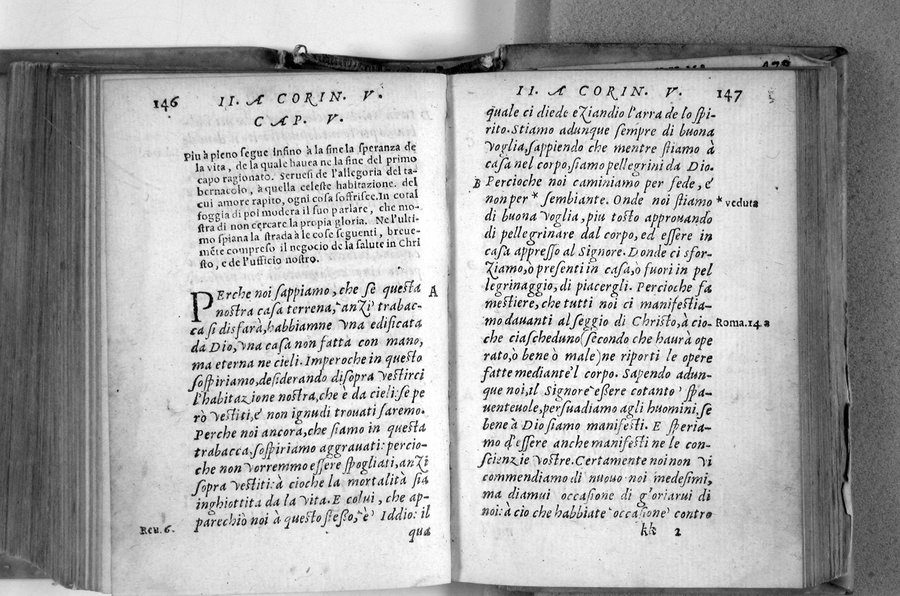 146 II. A CORIN. V.
CAP. V.
Piu à pieno segue insino à la fine la speranza de
la vita, de la quale hauea ne la fine del primo
capo ragionato. Seruesi de l'allegoria del ta-
bernacolo, à quella celeste habitazione. del
cui amore rapito, ogni cosa soffrisce. In cotal
foggia di poi modera il suo parlare, che mo-
stra di non cercare la propia gloria. Ne l'ulti
mo spiana la strada à le cose seguenti, breue-
mẽte compreso il negocio de la salute in Chri
sto, e de l'ufficio nostro.
PErche noi sappiamo, che se questa A
nostra casa terrena, anzi trabac-
ca si disfarà, habbiamne vna edificata
da Dio, vna casa non fatta con mano,
ma eterna ne cieli. Imperoche in questo
sospiriamo, desiderando disopra vestirci
l'habitazione nostra, che è da cieli: se pe
rò vestiti, e non ignudi trouati saremo.
Perche noi ancora, che siamo in questa
trabacca, sospiriamo aggrauati: percio-
che non vorremmo essere spogliati, anzi
sopra vestiti: à cioche la mortalità sia
inghiottita da la vita. E colui, che ap-
Reu. 6. parechiò noi à questo stesso, è Iddio: il
qua
II. A CORIN. V. 147
quale ci diede eziandio l'arra de lo spi-
rito. Stiamo adunque sempre di buona
voglia, sappiendo che mentre stiamo à
casa nel corpo, siamo pellegrini da Dio.
B Percioche noi caminiamo per fede, e
non per * sembiante. Onde noi stiamo * veduta
di buona voglia, piu tosto approuando
di pellegrinare dal corpo, ed essere in
casa appresso al Signore. Donde ci sfor-
ziamo, o presenti in casa, o fuori in pel
legrinaggio, di piacergli. Percioche fa
mestiere, che tutti noi ci manifestia-
mo dauanti al seggio di Christo, à cio- Roma. 14. a
che ciascheduno (secondo che haurà ope
rato, ò bene ò male) ne riporti le opere
fatte mediante'l corpo. Sapendo adun-
que noi, il Signore essere cotanto spa-
uenteuole, persuadiamo agli huomini, se
bene à Dio siamo manifesti. E speria-
mo d'essere anche manifesti ne le con-
scienzie vostre. Certamente noi non vi
commendiamo di nuouo noi medesimi,
ma diamui occasione di gloriarui di
noi: à cio che habbiate occasione contro
kk 2